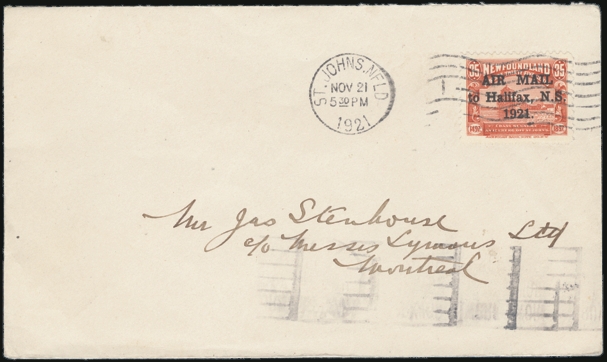 ST. JOHN'S. NFLD
NOV 21
5 30 PM
1921
35 NEWFOUNDLAND 35
AIR MAIL
to Halifax, N.S.
1921.
Mr Jas Stenhouse
c/o Messrs Lymans Ltd
Montreal